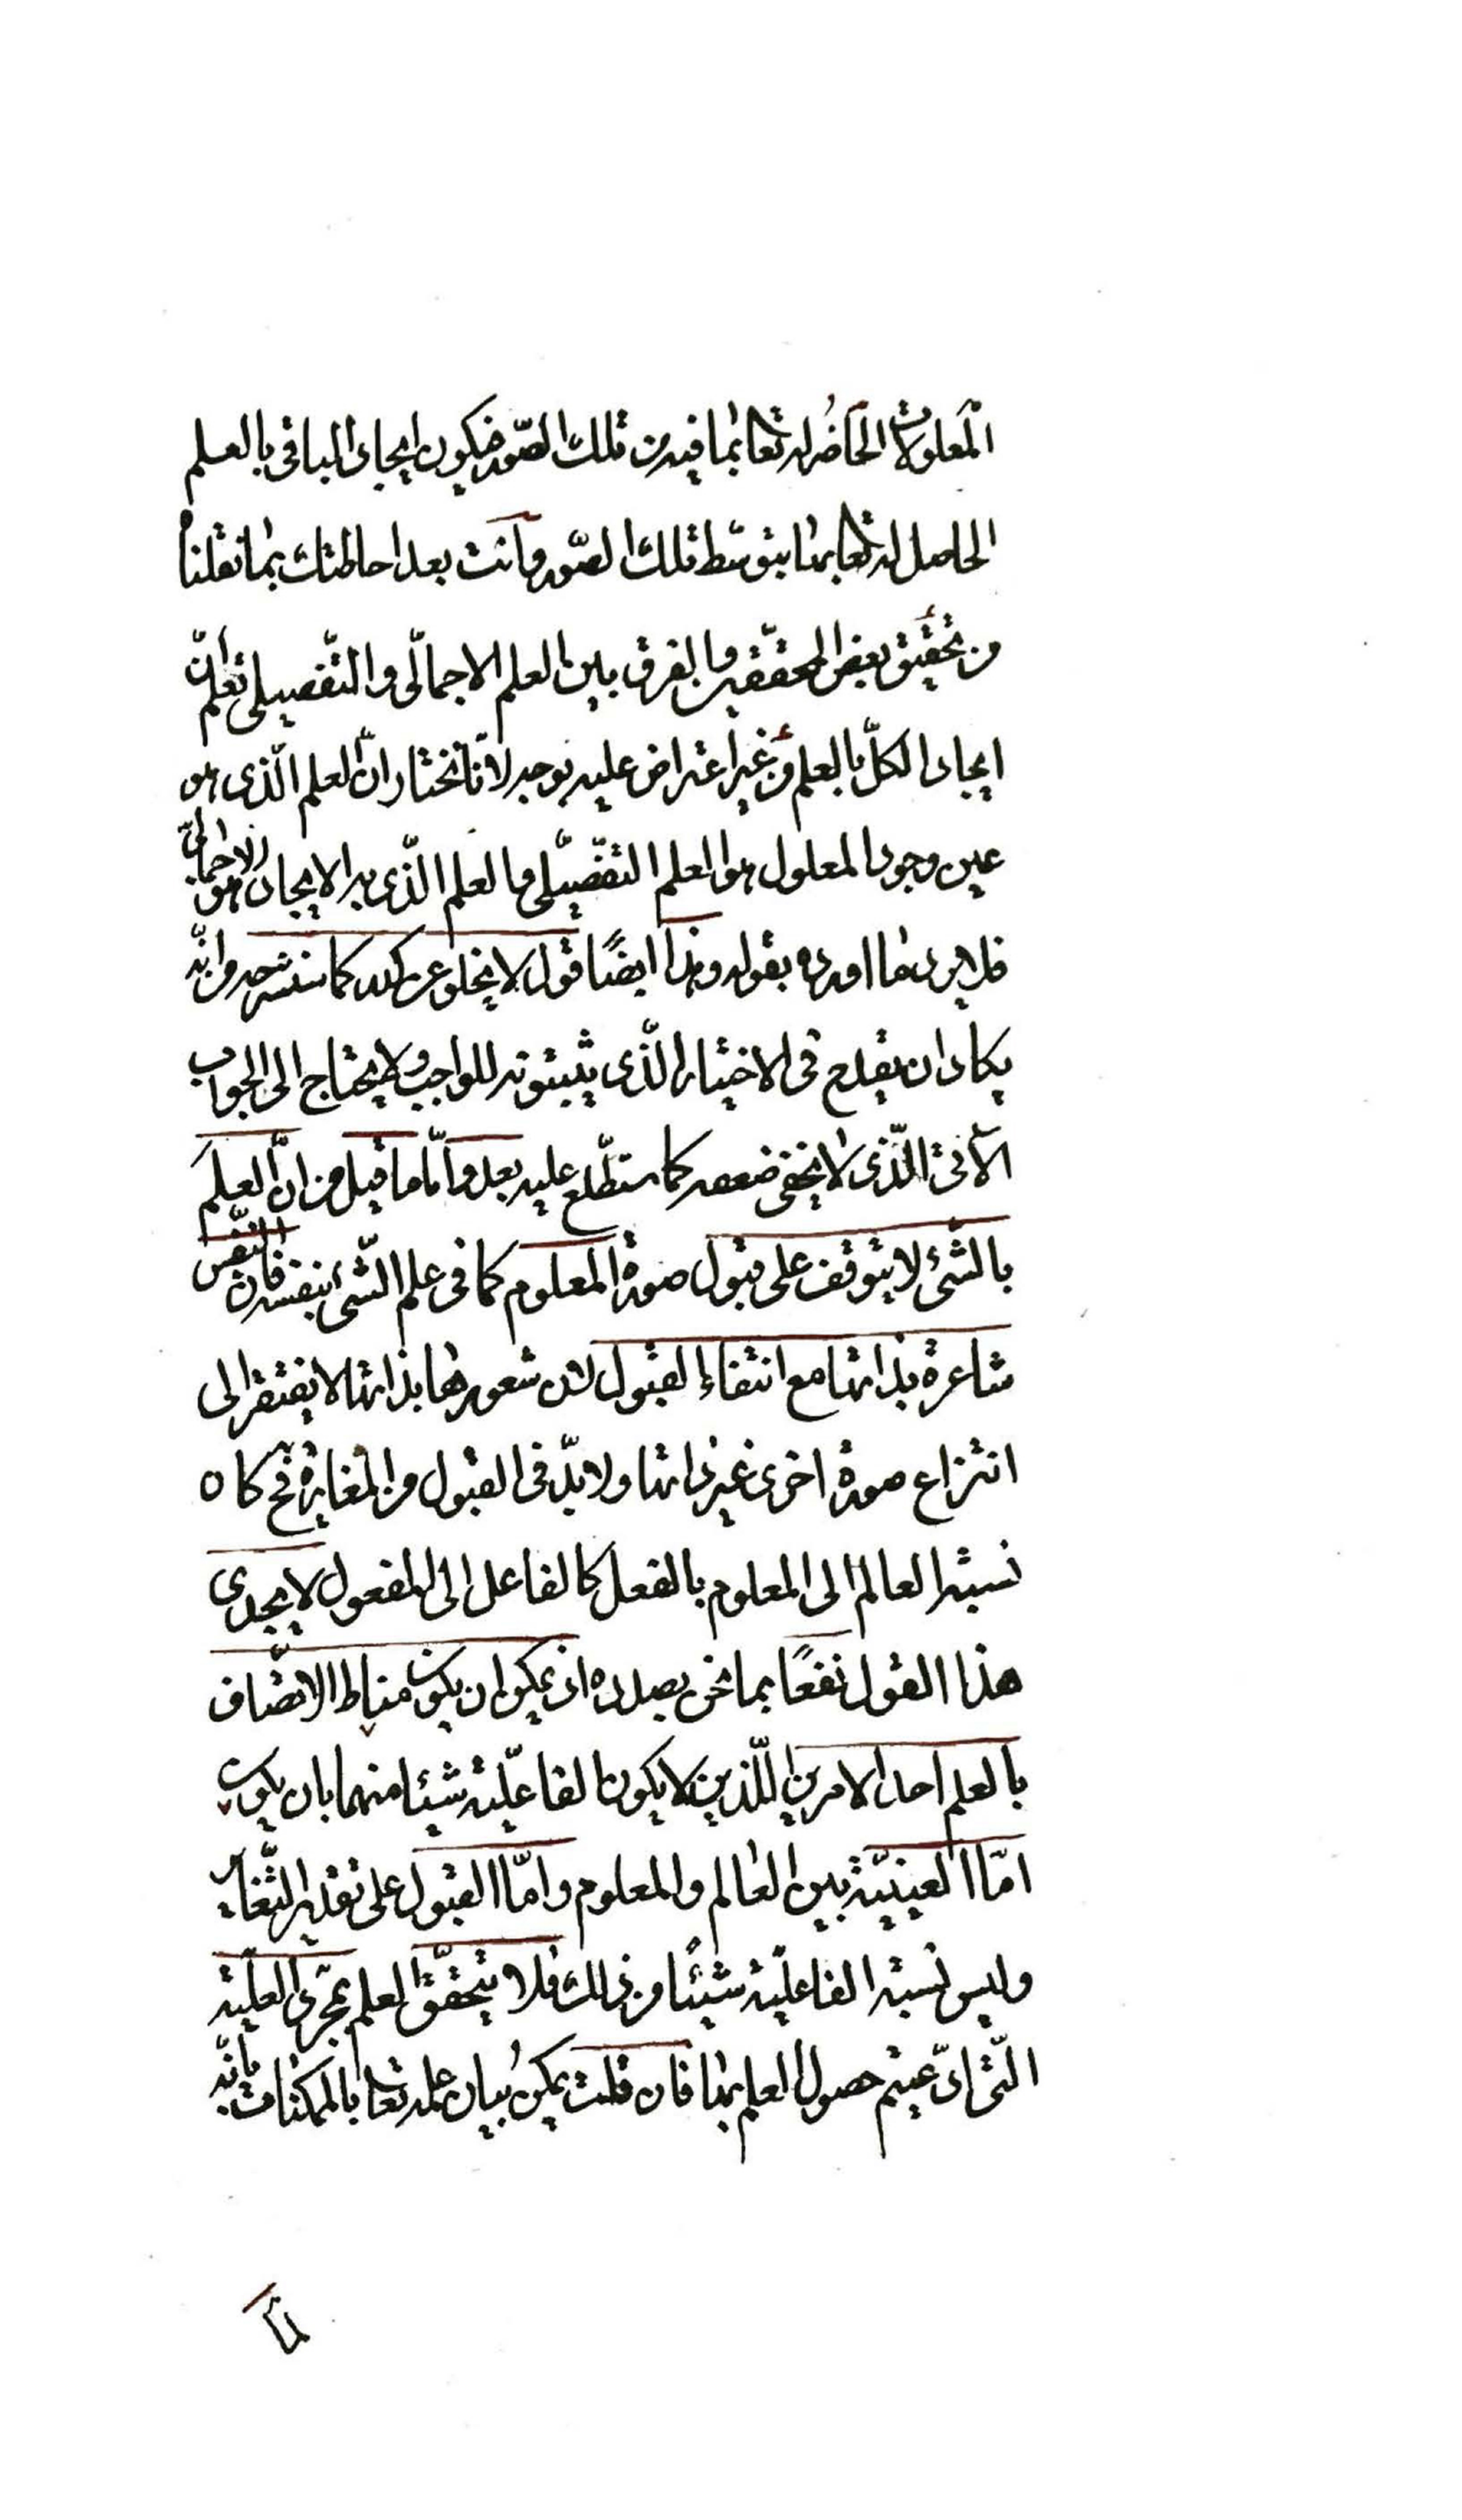 المعلولات الحاضر له تعا بما فيه من تلك الصور فيكون ايجاد الباقى بالعلم
الحاصل له تعا بها بتوسّط تلك الصّور وانت بعد احاطتك بما نقلنا
من تحقيق بعض المحققين والفرق بين العلم الاجمالى والتفصيلى تعلم انّ
ايجاد الكلّ بالعلم من غير اعتراض عليه بوجه لانّا نختار انّ العلم الّذى هو
عين وجود المعلول هو العلم التفصيلى والعلم الّذى به الايجاد هو الاجمالىّ
فلا يرد ما اورده بقوله وهذا ايضًا قول لا يخلو عن كدر كما سنشرحه وانّه
يكاد ان يقدح فى الاختيار الّذى يثبتونه للواجب ولا يحتاج الى الجواب
الآتى الّذى لا يخفى ضعفه كما ستطّلع عليه بعد وامّا ما قيل من انّ العلم
بالشئ لا يتوقف على قبول صورة المعلوم كما فى علم الشئ بنفسه فانّ النّفس
شاعرة بذاتها مع انتفاء القبول لان شعورها بذاتها لا يفتقر الى
انتزاع صورة اخرى غير ذاتها ولا بدّ فى القبول من المغايرة فح كان
نسبة العالم الى المعلوم بالفعل كالفاعل الى المفعول لا يجدى
هذا القول نفعًا بما نحن بصدده اذ يمكن ان يكون مناط الاتصاف
بالعلم احد الامرين اللّذين لا يكون الفاعليّة شيئا منهما بان يكون
امّا العينيّة بين العالم والمعلوم وامّا القبول على تقدير التّغاير
وليس نسبة الفاعليّة شيئًا من ذلك فلا يتحقّق العلم بمجرّد العليّة
الّتى ادّعيتم حصول العلم بها فان قلت يمكن بيان علمه تعا بالممكنات بانّه